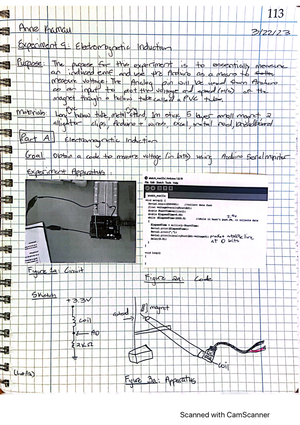 113
Anne Kamau
3/22/23
Experiment 5: Electromagnetic Induction
Purpose: The purpose for this experiment is to essentially measure
an induced EMF and use the Arduino as a means to
measure voltage. The Analog pin will be used from Arduino
as an input to plot the voltage and speed (m/s) of the
magnet through a hollow tube called a PVC tube.
Materials: long hollow tube, metal stand, 1m stick, 5 layer small magnet, 2
alligator clips, Arduino + wires, excel, metal rod, breadboard
Part A: Electromagnetic Induction
Goal: Obtain a code to measure voltage (in bits) using Arduino Serial monitor
Experiment Apparatus:
at 0 bits
Figure 1a: Circuit
Figure 2a: Code
Sketch
+3.3V
coil
A0
2kΩ
magnet
coil
Figure 3a: Apparatus
Scanned with CamScanner